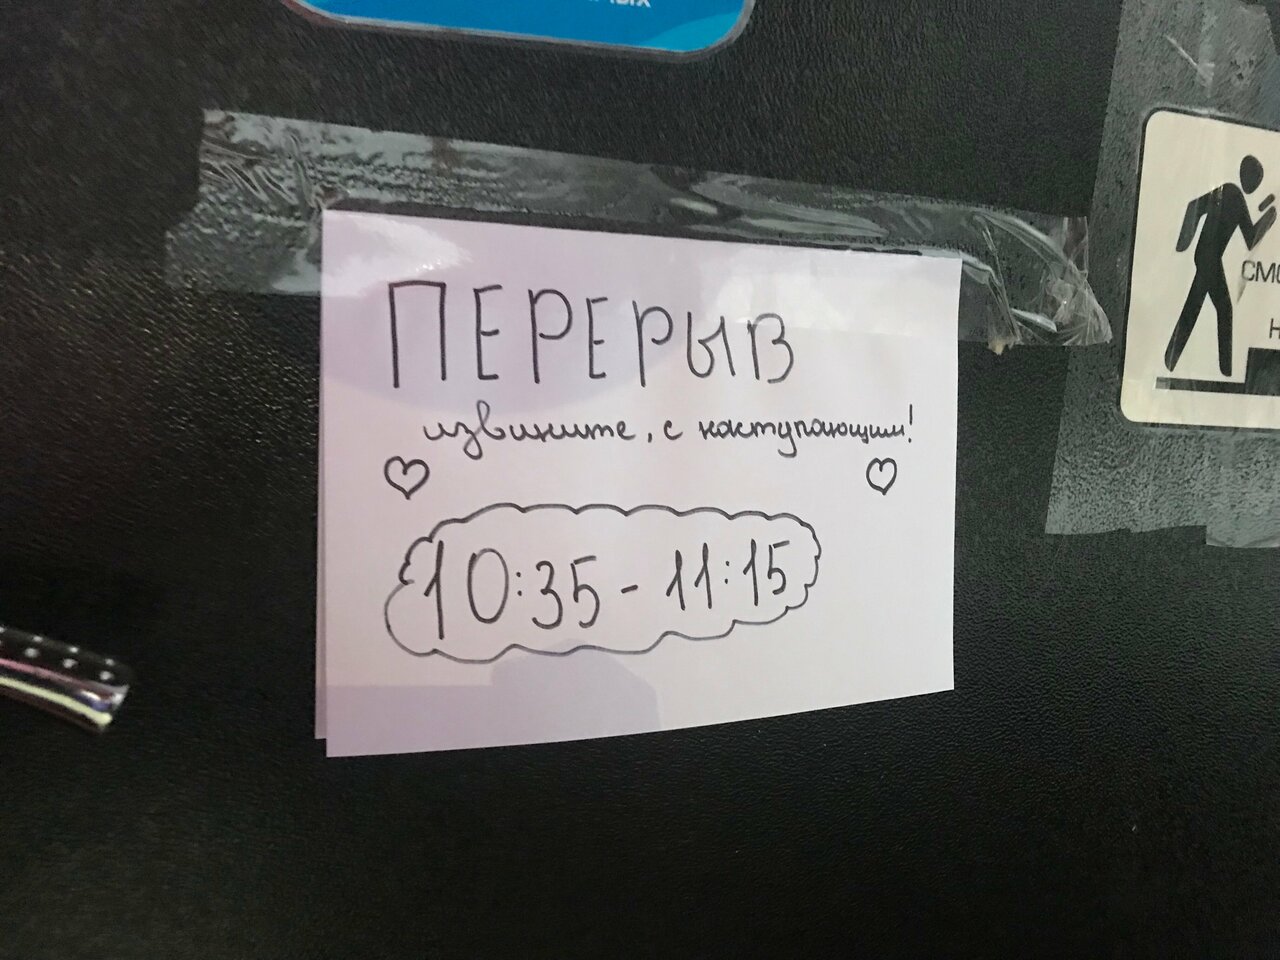 ПЕРЕРЫВ
извините, с наступающим!
10:35 - 11:15